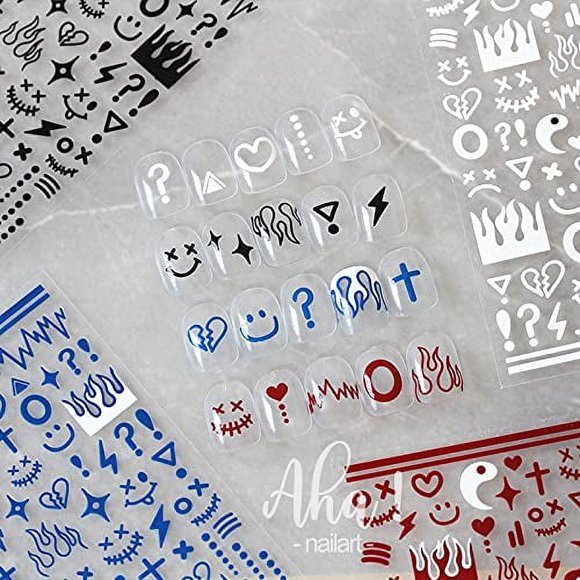 Aha!
-nailart